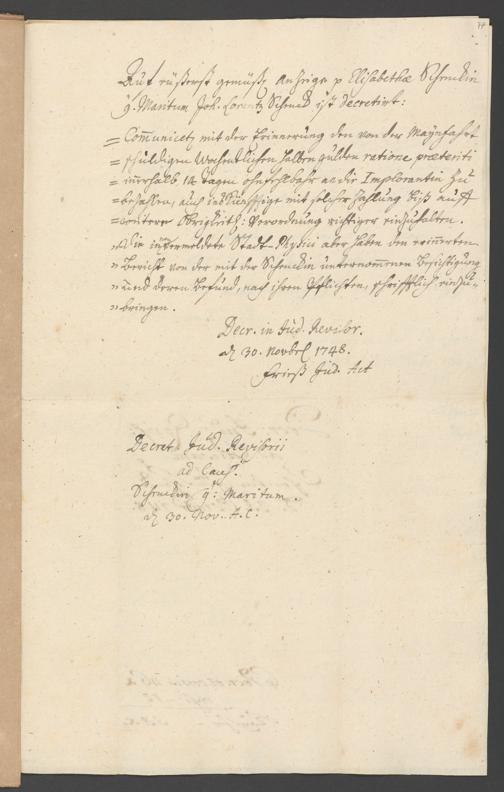 Auf eüsserst gemüß. Anzeige p Elisabethæ Schenckin
q. Maritum Joh. Lorentz Schenck ist decretirt:
= Communicetr mit der Erinnerung den von der Maynfahrt
= schuldigen Wochentlichen halben gulden ratione præteriti
= innerhalb 14 tagen ohnfehlbahr an die Implorantin zu
= bezahlen, auch ins künfftige mit solcher Zahlung biß auff
= weitere Obrigkeitl: Verordnung richtiger einzuhalten.
= Die intermeldete Stadt-Physici aber haben den erinnerten
= Bericht von der mit der Schenckin unternommenen Besichtigung
= und deren Befund, nach ihren Pflichten, schrifftlich einzu-
= bringen.
Decr. in Jud. Revisor.
d. 30. Novbr. 1748.
Frieß Jud. Act
Decret Jud. Revisorii
ad Caus.
Schenckin q: Maritum.
d. 30. Nov. A.C: